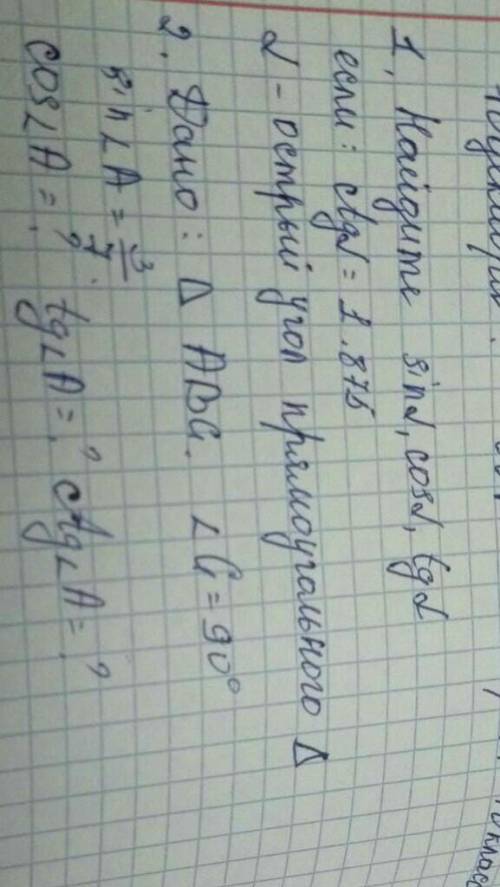 1. Найдите sinα, cosα, tgα
если: ctgα = 1.875
α - острый угол прямоугольного Δ
2. Дано: Δ ABC. ∠C = 90°
sin∠A = 3/7.
cos∠A = ? tg∠A = ? ctg∠A = ?